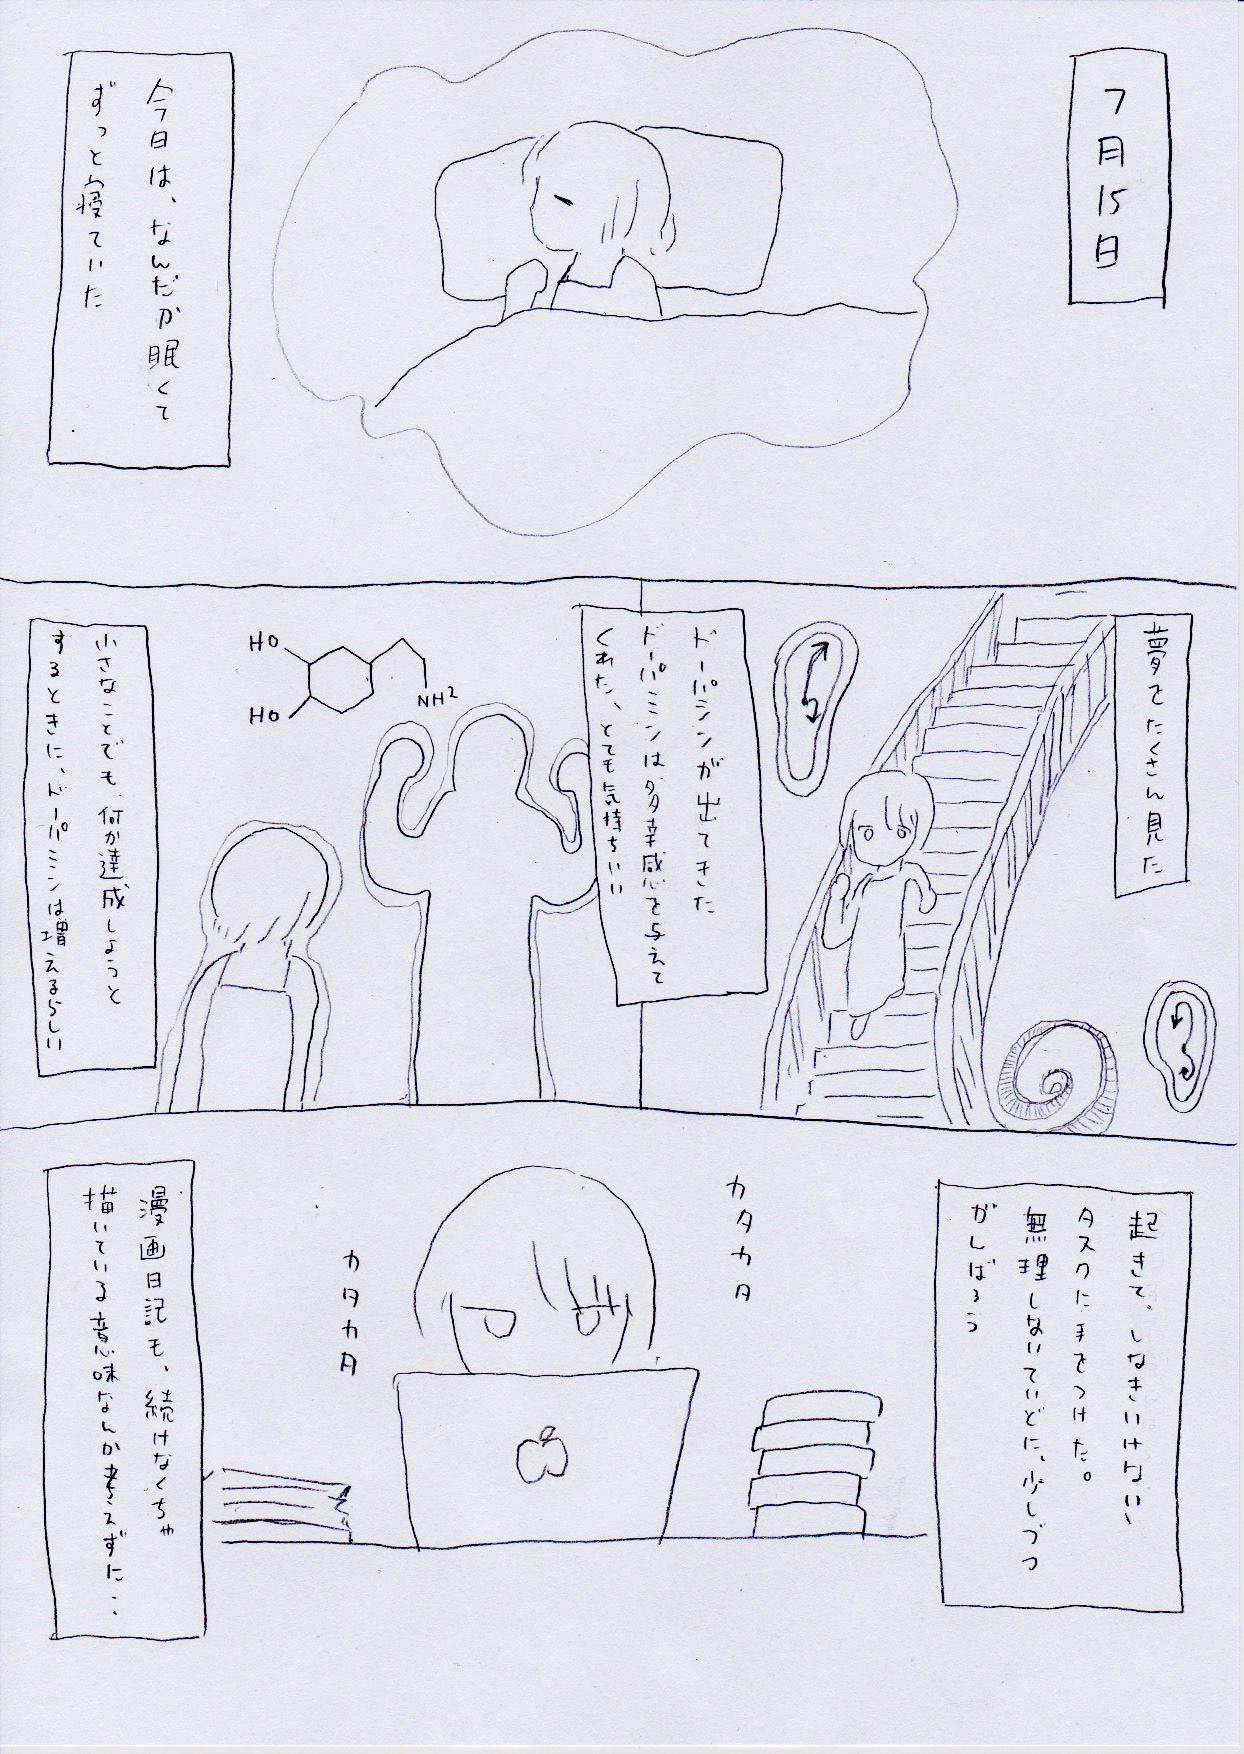 7月15日
今日は、なんだか眠くて
ずっと寝ていた
夢をたくさん見た
ドーパミンが出てきた
ドーパミンは多幸感を与えて
くれた、とても気持ちいい
HO
HO
NH2
小さなことでも、何か達成しようと
するときに、ドーパミンは増えるらしい
起きて、しなきいけない、
タスクに手をつけた。
無理しないていどに、少しづつ
がんばろう
カタカタ
カタカタ
漫画日記も、続けなくちゃ
描いている意味なんか考えずに...